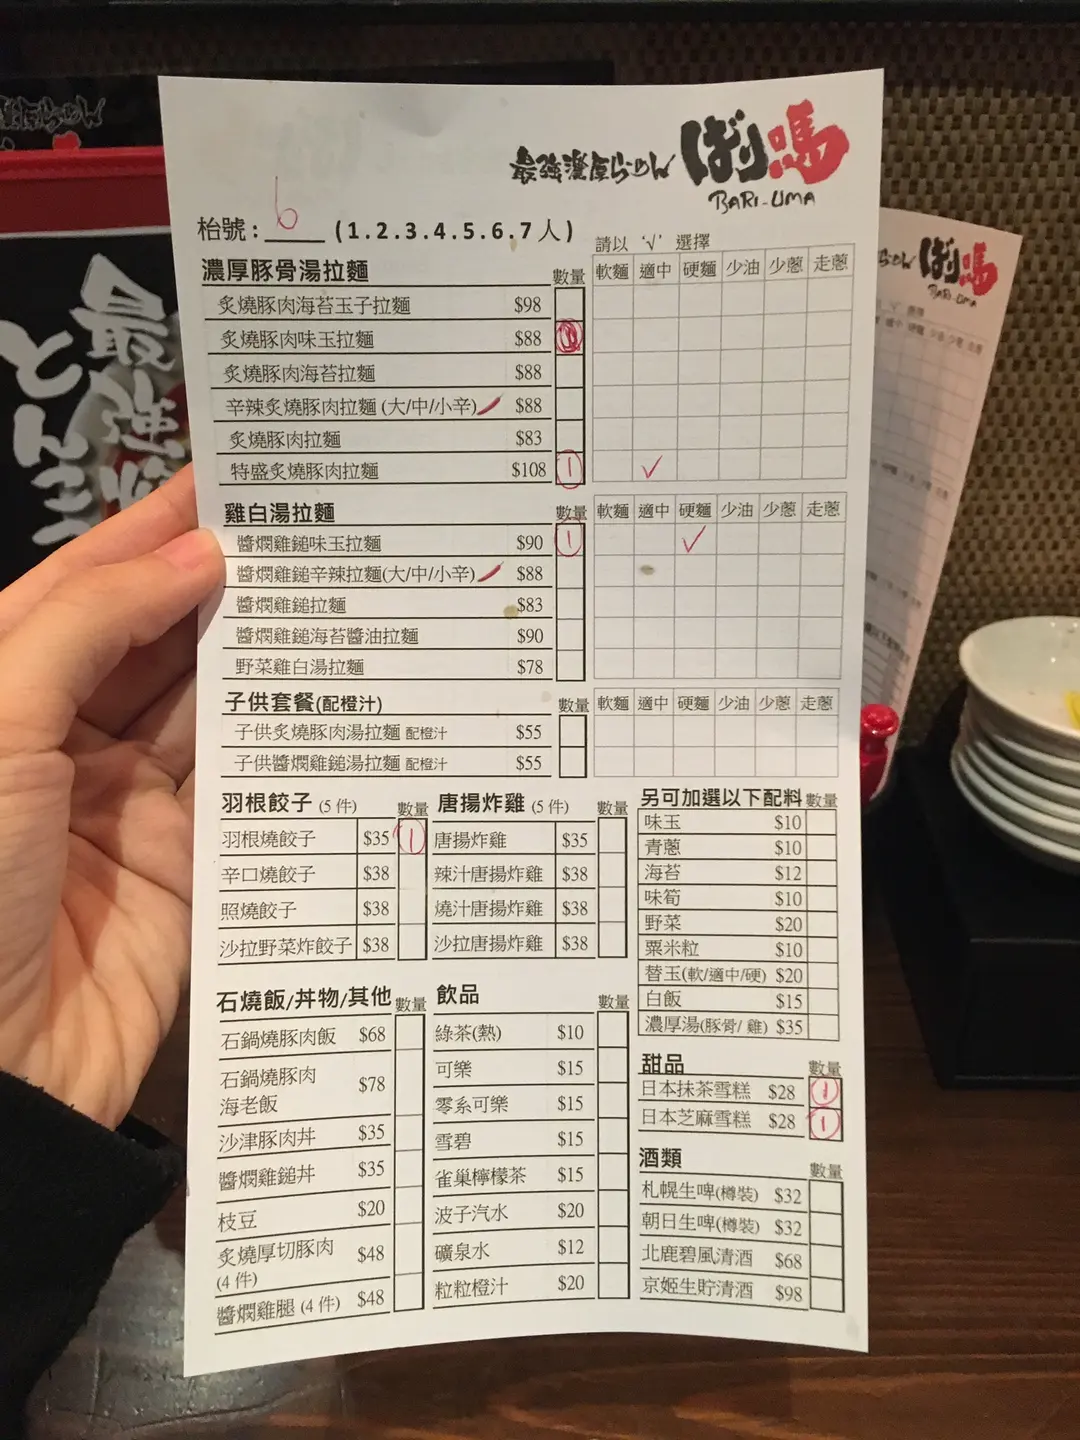 最強濃厚らーめん ばり嗎
BARI-UMA
枱號: 6 (1.2.3.4.5.6.7人)
請以 '√' 選擇
濃厚豚骨湯拉麵 數量 軟麵 適中 硬麵 少油 少蔥 走蔥
炙燒豚肉海苔玉子拉麵 $98
炙燒豚肉味玉拉麵 $88
炙燒豚肉海苔拉麵 $88
辛辣炙燒豚肉拉麵(大/中/小辛) $88
炙燒豚肉拉麵 $83
特盛炙燒豚肉拉麵 $108 1 ✓
雞白湯拉麵 數量 軟麵 適中 硬麵 少油 少蔥 走蔥
醬燜雞鎚味玉拉麵 $90 1 ✓
醬燜雞鎚辛辣拉麵(大/中/小辛) $88
醬燜雞鎚拉麵 $83
醬燜雞鎚海苔醬油拉麵 $90
野菜雞白湯拉麵 $78
子供套餐(配橙汁) 數量 軟麵 適中 硬麵 少油 少蔥 走蔥
子供炙燒豚肉湯拉麵 配橙汁 $55
子供醬燜雞鎚湯拉麵 配橙汁 $55
羽根餃子 (5 件) 數量
羽根燒餃子 $35 1
辛口燒餃子 $38
照燒餃子 $38
沙拉野菜炸餃子 $38
唐揚炸雞 (5 件) 數量
唐揚炸雞 $35
辣汁唐揚炸雞 $38
燒汁唐揚炸雞 $38
沙拉唐揚炸雞 $38
另可加選以下配料 數量
味玉 $10
青蔥 $10
海苔 $12
味筍 $10
野菜 $20
粟米粒 $10
替玉(軟/適中/硬) $20
白飯 $15
濃厚湯(豚骨/ 雞) $35
石燒飯/丼物/其他 數量
石鍋燒豚肉飯 $68
石鍋燒豚肉
海老飯 $78
沙津豚肉丼 $35
醬燜雞鎚丼 $35
枝豆 $20
炙燒厚切豚肉
(4 件) $48
醬燜雞腿 (4 件) $48
飲品 數量
綠茶(熱) $10
可樂 $15
零系可樂 $15
雪碧 $15
雀巢檸檬茶 $15
波子汽水 $20
礦泉水 $12
粒粒橙汁 $20
甜品 數量
日本抹茶雪糕 $28 1
日本芝麻雪糕 $28 1
酒類 數量
札幌生啤(樽裝) $32
朝日生啤(樽裝) $32
北鹿碧風清酒 $68
京姬生貯清酒 $98
ばり嗎
BARI-UMA
最強
とんこつ